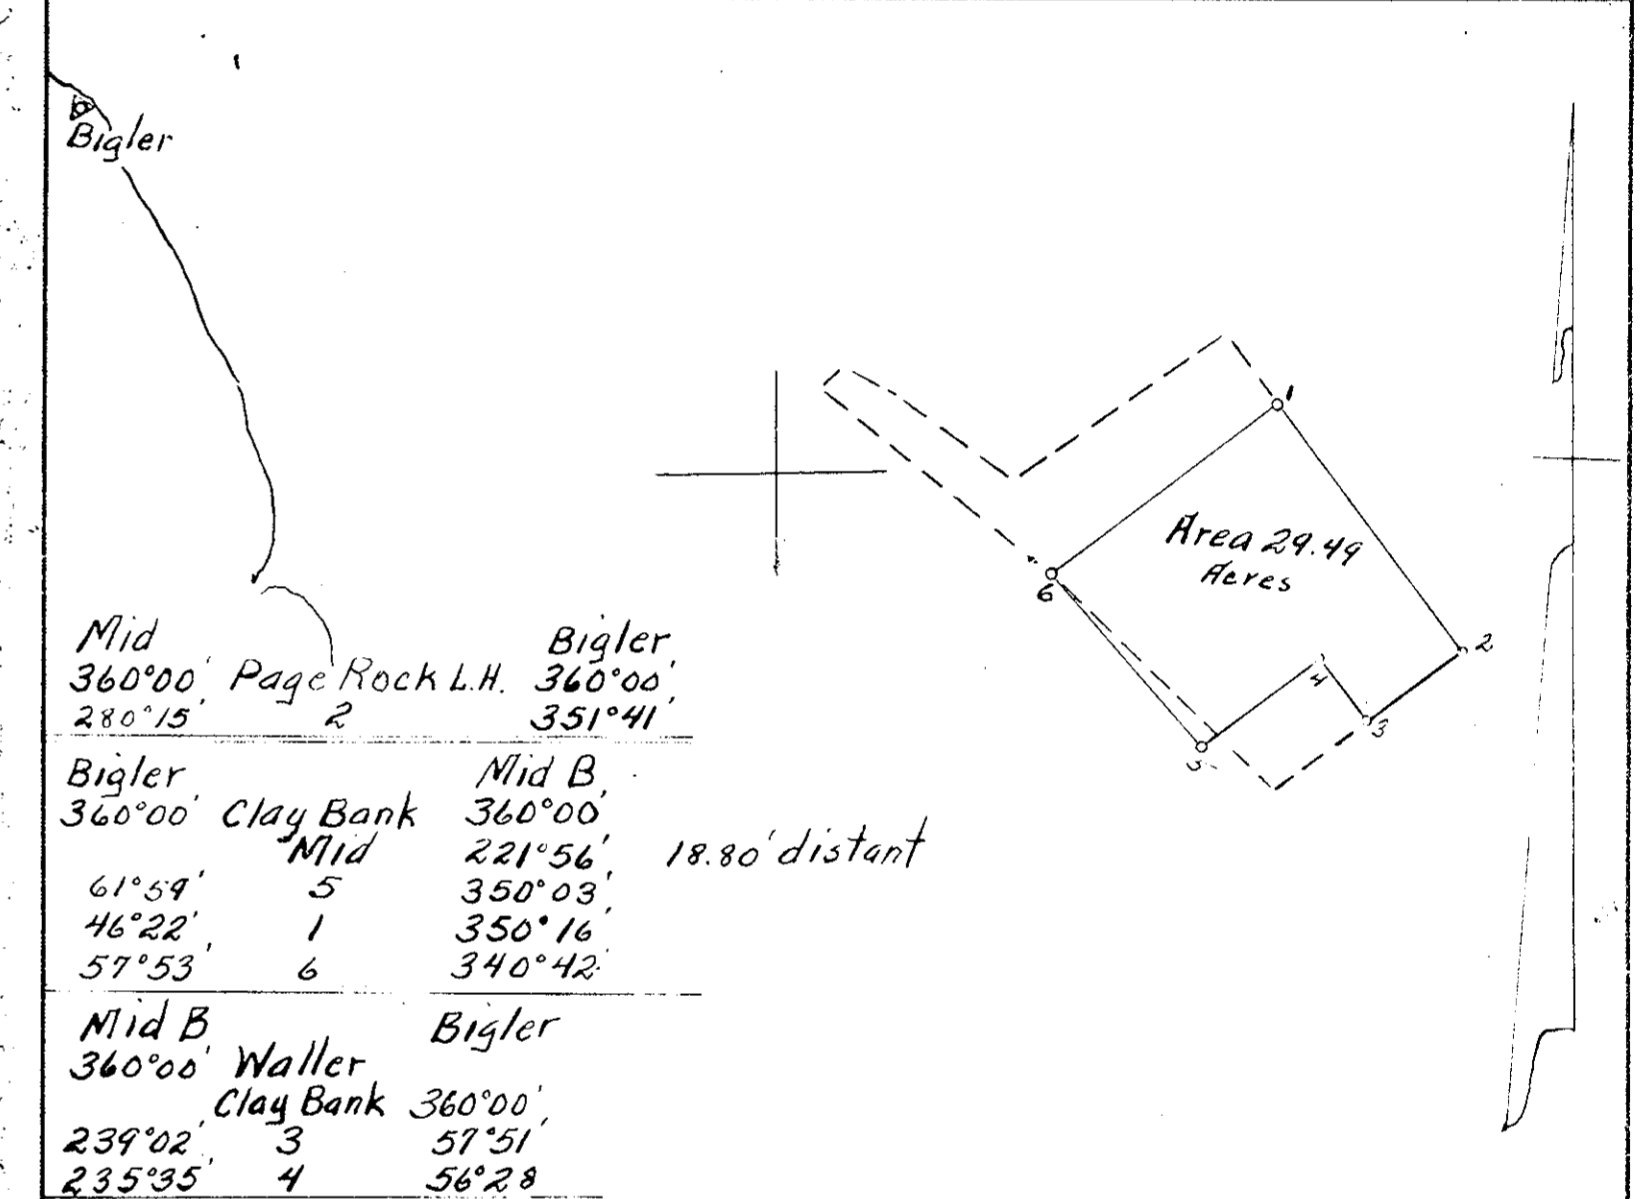 Bigler
1
Area 29.49
Acres
6
2
4
3
5
Mid Bigler
360°00' Page Rock L.H. 360°00'
280°15' 2 351°41'
Bigler Mid B
360°00' Clay Bank 360°00'
Mid 221°56' 18.80' distant
61°59' 5 350°03'
46°22' 1 350°16'
57°53' 6 340°42'
Mid B Bigler
360°00' Waller
Clay Bank 360°00'
239°02' 3 57°51'
235°35' 4 56°28